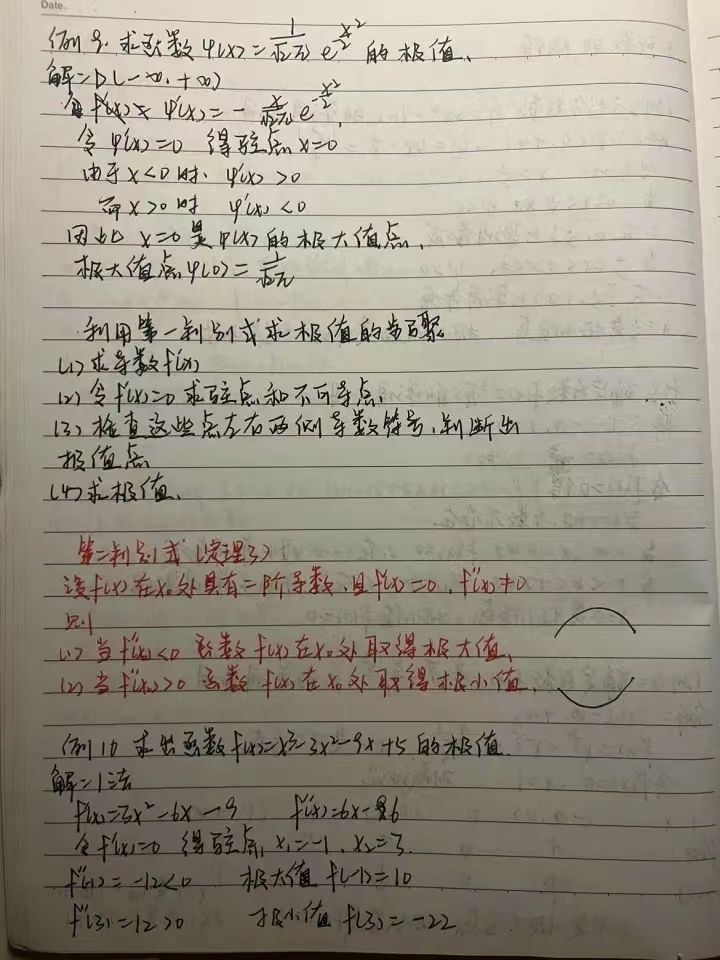 Date
例9. 求函数 φ(x) = 1/√2π e^(-x²/2) 的极值.
解:D(-∞, +∞)
φ'(x) = - x/√2π e^(-x²/2),
令 φ'(x)=0 得驻点 x=0
由于 x<0 时, φ'(x) >0
而 x>0 时 φ'(x) <0
因此 x=0 是 φ(x) 的极大值点,
极大值点 φ(0) = 1/√2π
利用第一判别式求极值的步骤
(1) 求导数 f'(x)
(2) 令 f'(x)=0 求驻点和不可导点,
(3) 检查这些点左右两侧导数符号,判断出
极值点
(4) 求极值.
第二判别式 (定理3)
设 f(x) 在 x₀ 处具有二阶导数,且 f'(x₀)=0, f''(x₀)≠0
则
(1) 当 f''(x₀)<0 函数 f(x) 在 x₀ 处取得极大值,
(2) 当 f''(x₀)>0 函数 f(x) 在 x₀ 处取得极小值,
例10 求出函数 f(x)=x³-3x²-9x+5 的极值.
解:1法
f'(x)=3x²-6x-9 f''(x)=6x-6
令 f'(x)=0 得驻点 x₁=-1, x₂=3.
f''(-1) = -12<0 极大值 f(-1)=10
f''(3)=12>0 极小值 f(3)=-22